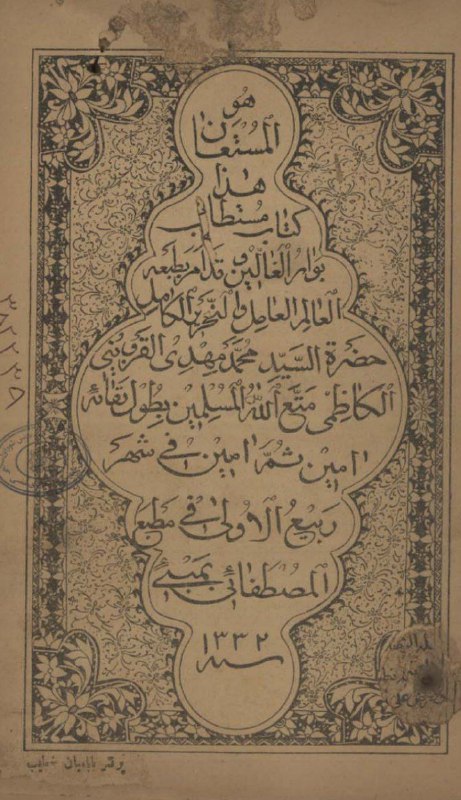 هو
المستعان
هذا
كتاب مستطاب
بوار الغالين و قد امر بطبعه
العالم العامل والنحرير الكامل
حضرة السيد محمد مهدي القزويني
الكاظمي متع الله المسلمين بطول بقائه
امين ثم امين في شهر
ربيع الاولى في مطبع
المصطفائي بمبئي
سنه ١٣٣٢